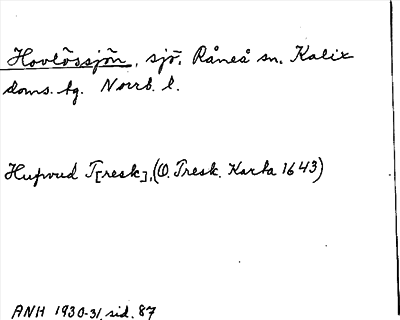 Hovlössjön, sjö, Råneå sn. Kalix
doms. tg. Norrb. l.
Hufwud T[resk], (O. Tresk. Karta 1643)
ANH 1930-31, sid. 87